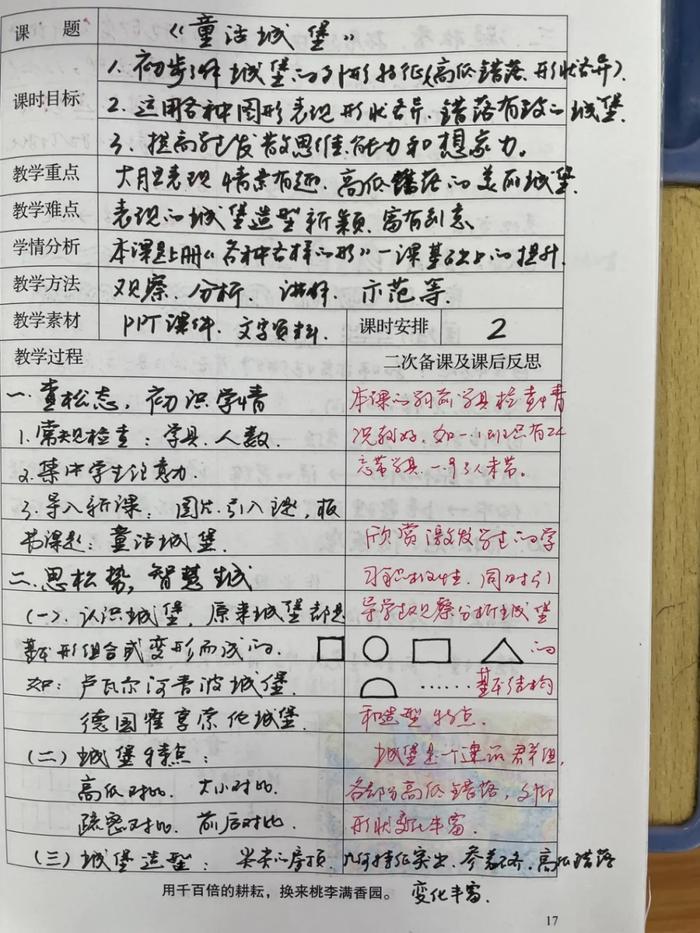 课 题 《童话城堡》
课时目标 1.初步了解城堡的外形特征(高低错落、形状各异).
2.运用各种图形表现形状各异、错落有致的城堡.
3.提高学生发散思维能力和想象力。
教学重点 大胆表现情景有趣、高低错落的美丽城堡.
教学难点 表现的城堡造型新颖、富有创意
学情分析 本课是上册《各种各样的形》一课基础上的提升.
教学方法 观察、分析、讲解、示范等.
教学素材 PPT课件、文字资料. 课时安排 2
教学过程 二次备课及课后反思
一.查松态,初识学情 本课的课前学具检查情
1.常规检查:学具、人数. 况较好,如一.1班只有2人
2.集中学生注意力. 忘带学具.一.3人未带。
3.导入新课:图片引入课,板
书课题:童话城堡. 欣赏激发学生的学
二.思松势,智慧生成 习积极性,同时引
(一).认识城堡,原来城堡都是 导学生观察分析城堡
基本形组合或变形而成的. 的
如:卢瓦尔河香波城堡. …… 基本结构
德国霍亨索伦城堡. 和造型特点.
(二)城堡特点: 城堡是一个建筑群组,
高低对比、大小对比 各部分高低错落,
疏密对比、前后对比. 形状变化丰富.
(三)城堡造型:尖尖的房顶、几何特征突出、参差不齐、高低错落
变化丰富.
用千百倍的耕耘,换来桃李满香园。
17